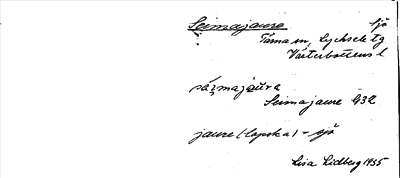 Seimajaure sjö
Tärna sn, Lycksele tg
Västerbottens l
Seimajaure G32
jaure (lapska) = sjö
Lisa Lidberg 1935